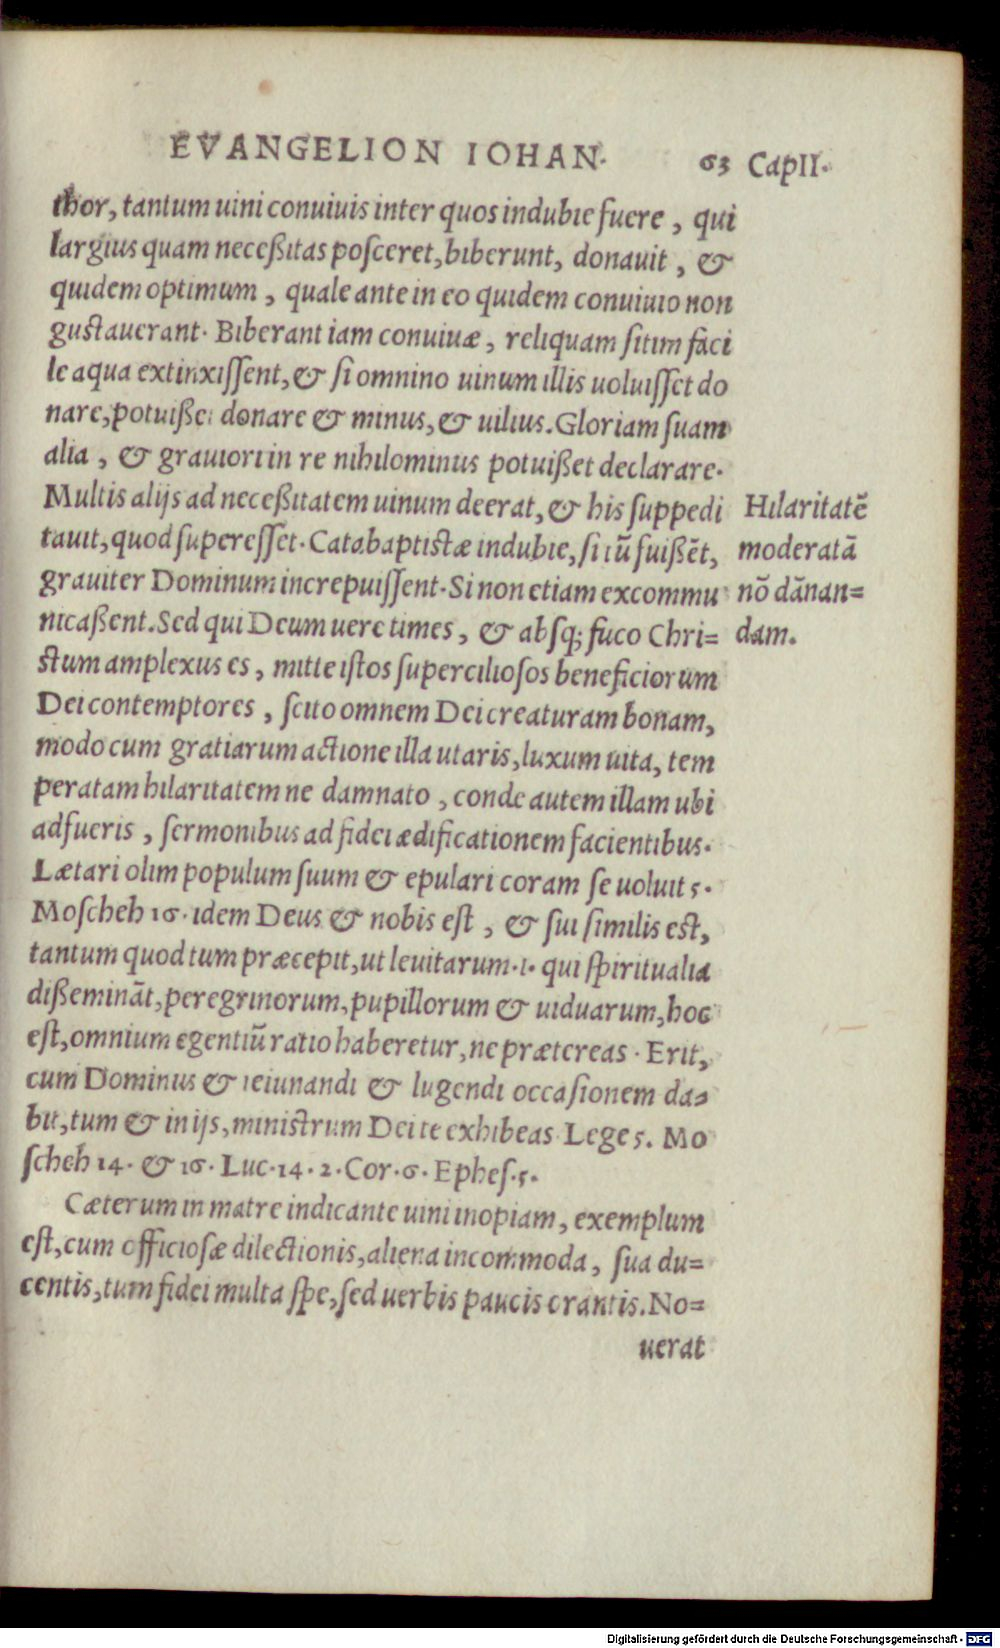 EVANGELION IOHAN. 63 CapII.
thor, tantum uini conuiuis inter quos indubie fuere, qui
largius quam neceßitas posceret, biberunt, donauit, &
quidem optimum, quale ante in eo quidem conuiuio non
gustauerant. Biberant iam conuiuæ, reliquam sitim faci
le aqua extinxissent, & si omnino uinum illis uoluisset do
nare, potuißet donare & minus, & uilius. Gloriam suam
alia, & grauiori in re nihilominus potuißet declarare.
Multis alijs ad neceßitatem uinum deerat, & his suppedi
tauit, quod superesset. Catabaptistæ indubie, si tū fuißēt,
grauiter Dominum increpuissent. Si non etiam excommu
nicaßent. Sed qui Deum uere times, & absq; fuco Chri=
stum amplexus es, mitte istos superciliosos beneficiorum
Dei contemptores, scito omnem Dei creaturam bonam,
modo cum gratiarum actione illa utaris, luxum uita, tem
peratam hilaritatem ne damnato, conde autem illam ubi
adfueris, sermonibus ad fidei ædificationem facientibus.
Lætari olim populum suum & epulari coram se uoluit 5.
Moscheh 16. idem Deus & nobis est, & sui similis est,
tantum quod tum præcepit, ut leuitarum .i. qui spiritualia
dißemināt, peregrinorum, pupillorum & uiduarum, hoc
est, omnium egentiū ratio haberetur, ne prætereas. Erit,
cum Dominus & ieiunandi & lugendi occasionem da=
bit, tum & in ijs, ministrum Dei te exhibeas. Lege 5. Mo
scheh 14. & 16. Luc. 14. 2. Cor. 6. Ephes. 5.
Cæterum in matre indicante uini inopiam, exemplum
est, cum officiosæ dilectionis, aliena incommoda, sua du=
centis, tum fidei multa spe, sed uerbis paucis orantis. No=
uerat
Hilaritatē
moderatā
nō dānan=
dam.
Digitalisierung gefördert durch die Deutsche Forschungsgemeinschaft - DFG